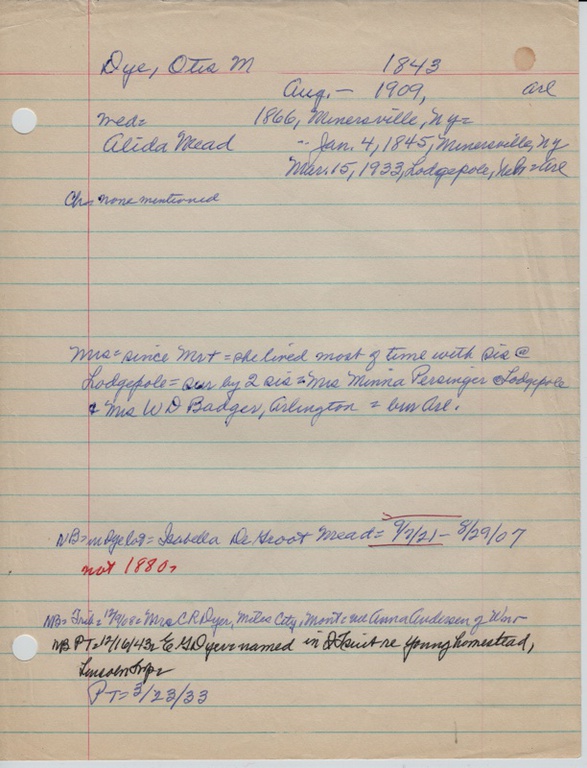 Dye, Otis M 1843
Aug. — 1909, arl
wed= 1866, Minersville, Ny=
Alida Mead " Jan. 4, 1845, Minersville, Ny
Mar. 15, 1933, Lodgepole, Nebr = arl
Ch= none mentioned
Mrs= since Mr + = she lived most of time with sis @
Lodgepole = sur by 2 sis = Mrs Minna Persinger @ Lodgepole
& Mrs W D Badger, Arlington = bur Arl.
NB= in Dye lot = Isabella De Groot Mead = 9/7/21 – 8/29/07
not 1880s
NB= Trib = 12/9/68 = Mrs C R Dyer, Miles City, Mont = nee Anna Andersen of
NB PT= 12/16/43= E G Dyer= named in re Young homestead,
Lincoln Twp=
PT= 3/23/33